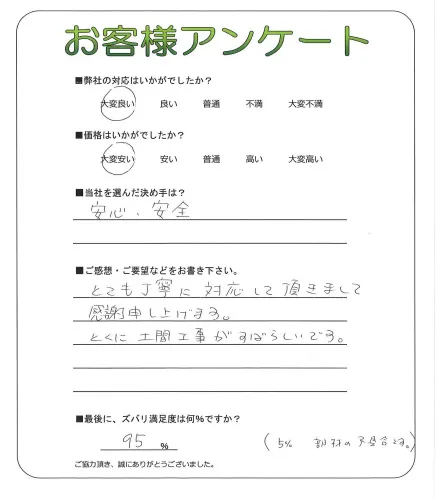 お客様アンケート
■弊社の対応はいかがでしたか？
大変良い 良い 普通 不満 大変不満
■価格はいかがでしたか？
大変安い 安い 普通 高い 大変高い
■当社を選んだ決め手は？
安心、安全
■ご感想・ご要望などをお書き下さい。
とても丁寧に対応して頂きまして
感謝申し上げます。
とくに土間工事がすばらしいです。
■最後に、ズバリ満足度は何%ですか？
95 %
(5% の不具合です。)
ご協力頂き、誠にありがとうございました。